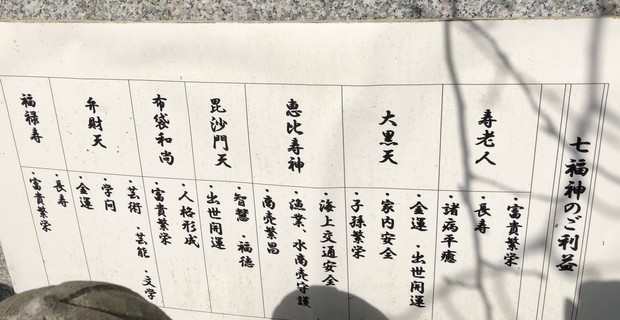 七福神のご利益
寿老人
・富貴繁栄
・長寿
・諸病平癒
大黒天
・金運・出世開運
・家内安全
・子孫繁栄
恵比寿神
・海上交通安全
・漁業、水商売守護
・商売繁昌
毘沙門天
・智慧・福徳
・出世開運
布袋和尚
・人格形成
・富貴繁栄
弁財天
・芸術・芸能・文学
・学問
・金運
福禄寿
・長寿
・富貴繁栄